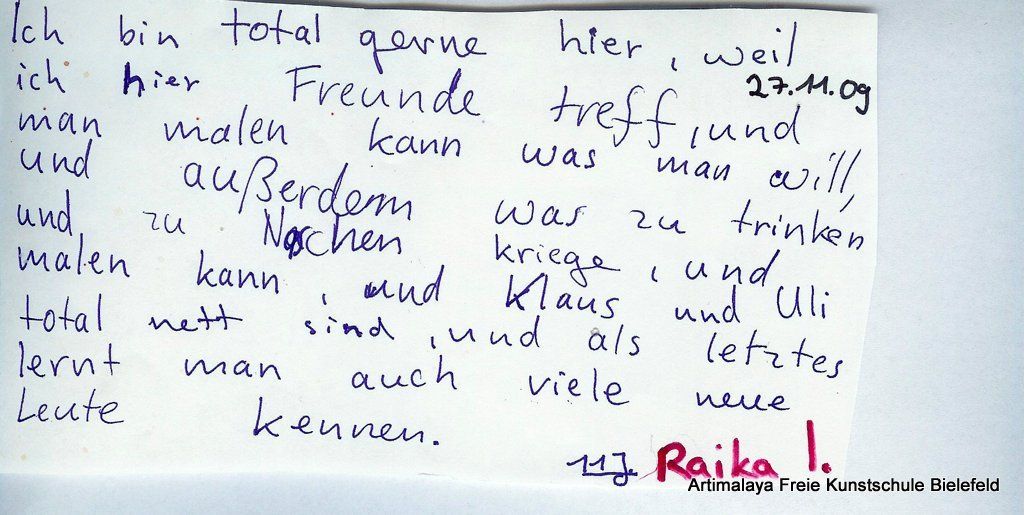 Ich bin total gerne hier, weil
27.11.09
ich hier Freunde treff, und
man malen kann was man will,
und außerdem was zu trinken
und zu Naschen kriege, und
malen kann, und Klaus und Uli
total nett sind, und als letztes
lernt man auch viele neue
Leute kennen.
11J. Raika I.
Artimalaya Freie Kunstschule Bielefeld